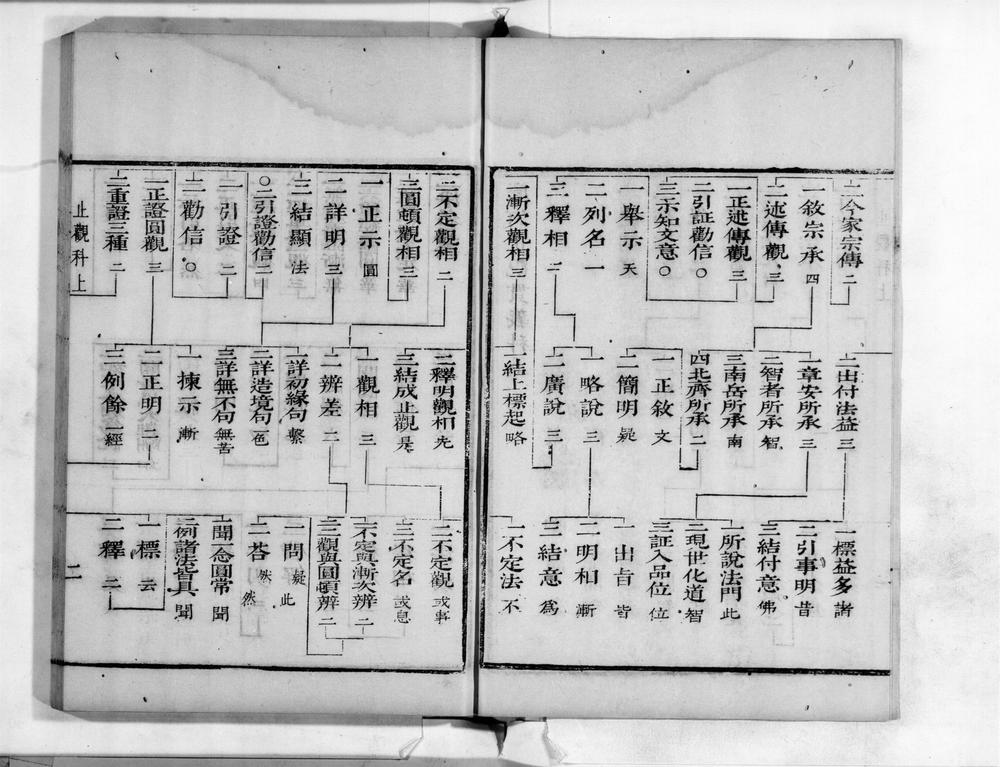 二今家宗傳 二
一敘宗承 四
二述傳觀 三
一正述傳觀 三
二引証勸信 〇
三示知文意 〇
一舉示 天
二列名 一
三釋相 二
一漸次觀相 三
二出付法益 三
一章安所承 三
二智者所承 智
三南岳所承 南
四北齊所承 二
一正敘 文
二簡明 疑
一略說 三
二廣說 三
一結上標起 略
一標益多 諸
二引事明 昔
三結付意 佛
一所說法門 此
二現世化道 智
三証入品位 位
一出旨 皆
二明相 漸
三結意 為
一不定法 不
二不定觀相 二
三圓頓觀相 三
一正示 圓
二詳明 三
三結顯 法
〇二引證勸信 二
一引證 二
二勸信 〇
一正證圓觀 三
二重證三種 二
止觀科上
二釋明觀相 先
三結成止觀 是
一觀相 三
二辨差 二
一詳初緣句 繫
二詳造境句 色
三詳無不句 無苦
一揀示 漸
二正明 二
三例餘 一經
二不定觀 或事
三不定名 或息
一不定與漸次辨 二
二觀與圓頓辨 二
一問 疑此
二答 然然
一聞一念圓常 聞
二例諸法皆具 聞
一標 云
二釋 二
二